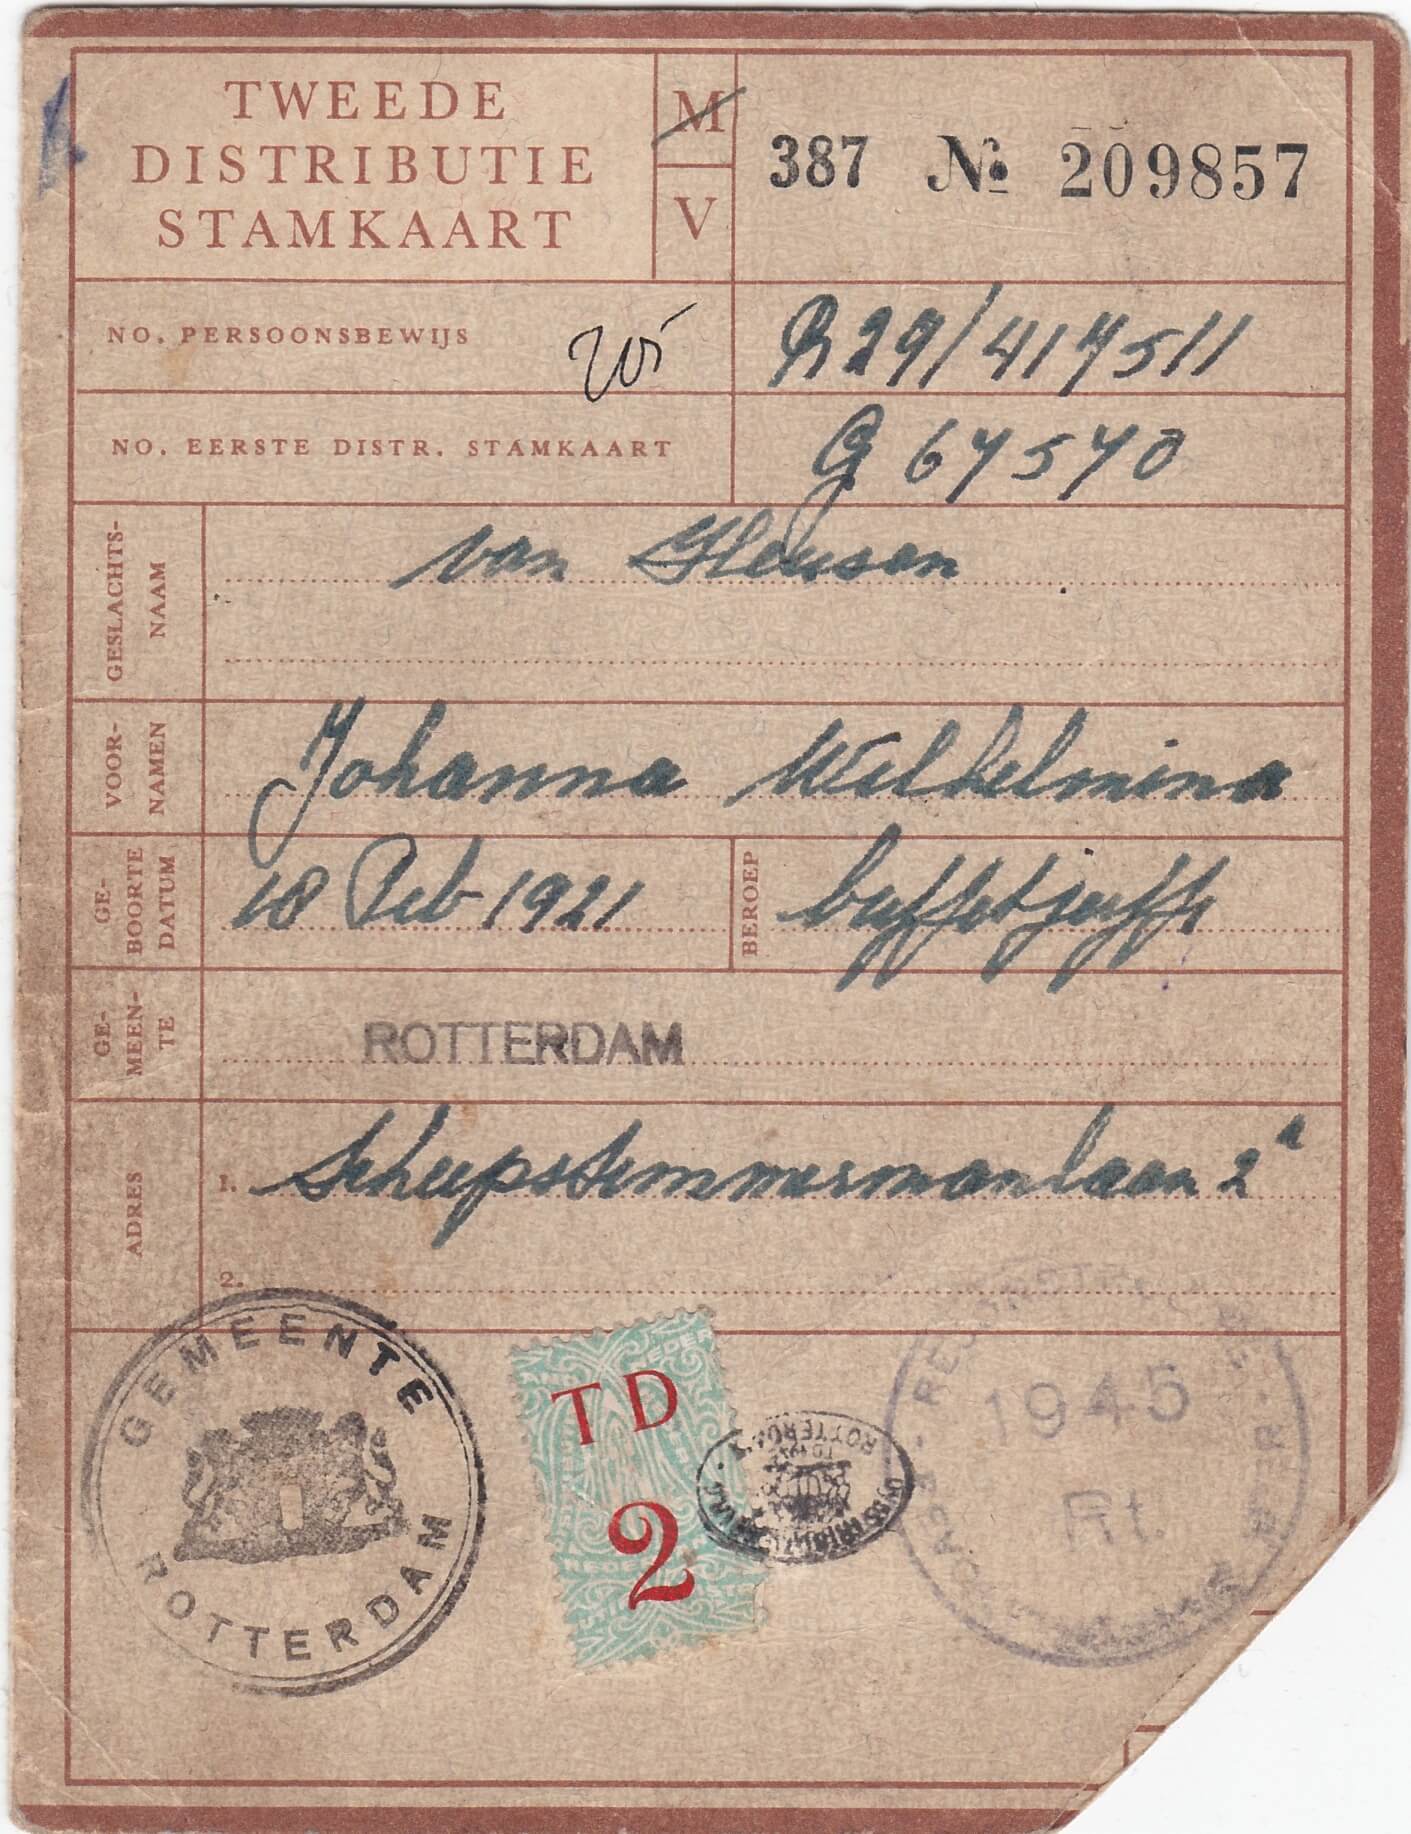 TWEEDE
DISTRIBUTIE
STAMKAART
M
V
387 No 209857
NO. PERSOONSBEWIJS
R29/417511
NO. EERSTE DISTR. STAMKAART
G 67570
GESLACHTS-
NAAM
van Heusen
VOOR-
NAMEN
Johanna Wilhelmina
GE-
BOORTE
DATUM
18 Feb 1921
BEROEP
buffetjuffr
GE-
MEEN-
TE
ROTTERDAM
ADRES
1. Scheepstimmermanlaan 2a
2.
GEMEENTE
ROTTERDAM
TD
2
ROTTERDAM
1945
Rt.